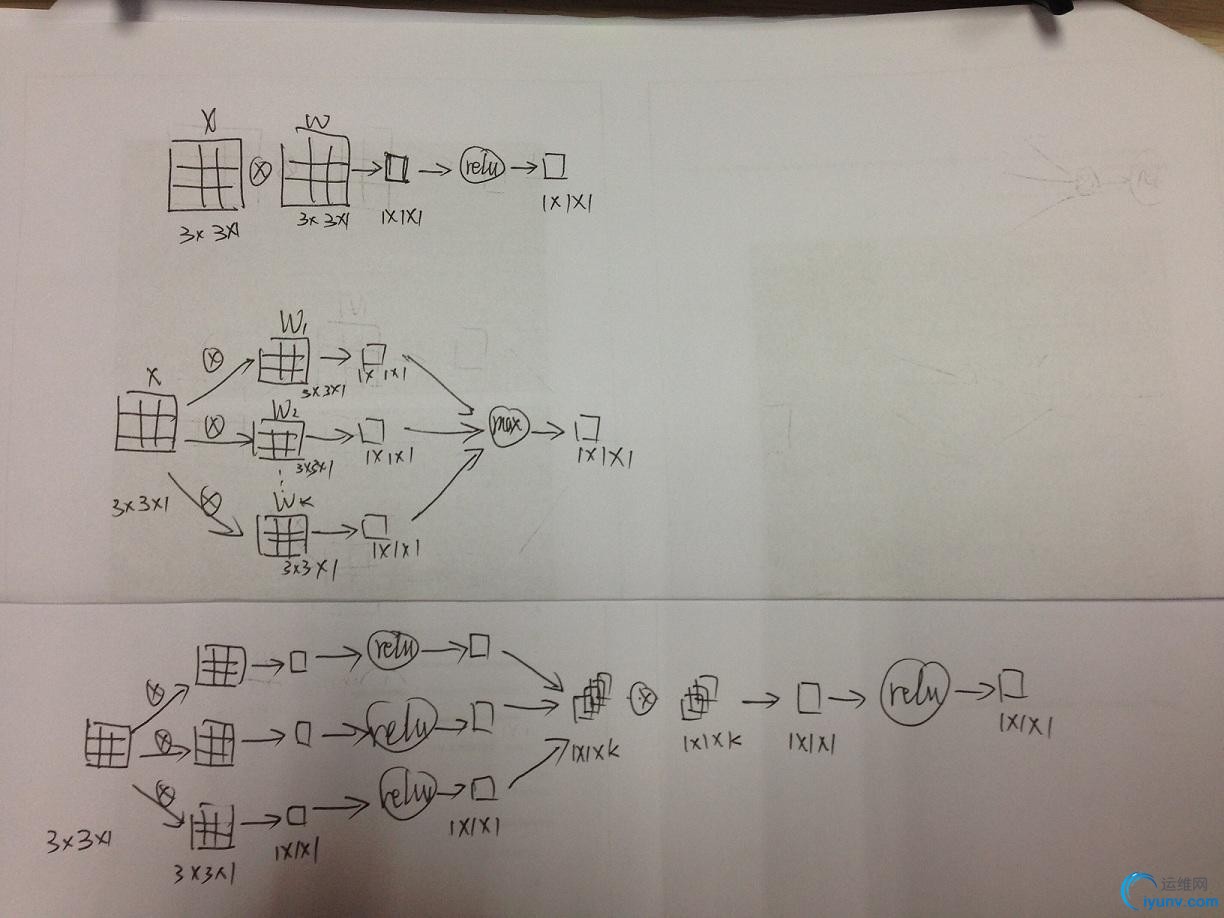 X W
⊗
relu
3x3x1 3x3x1 1x1x1 1x1x1
W1
X ⊗
1x1x1
3x3x1
W2
⊗ max
1x1x1 1x1x1
3x3x1
⋮
3x3x1 ⊗ Wk
1x1x1
3x3x1
relu
⊗ ⊗ relu
⊗ relu 1x1xk 1x1xk 1x1x1 1x1x1
⊗ relu
1x1x1
3x3x1 1x1x1
3x3x1
运维网
iyunv.com